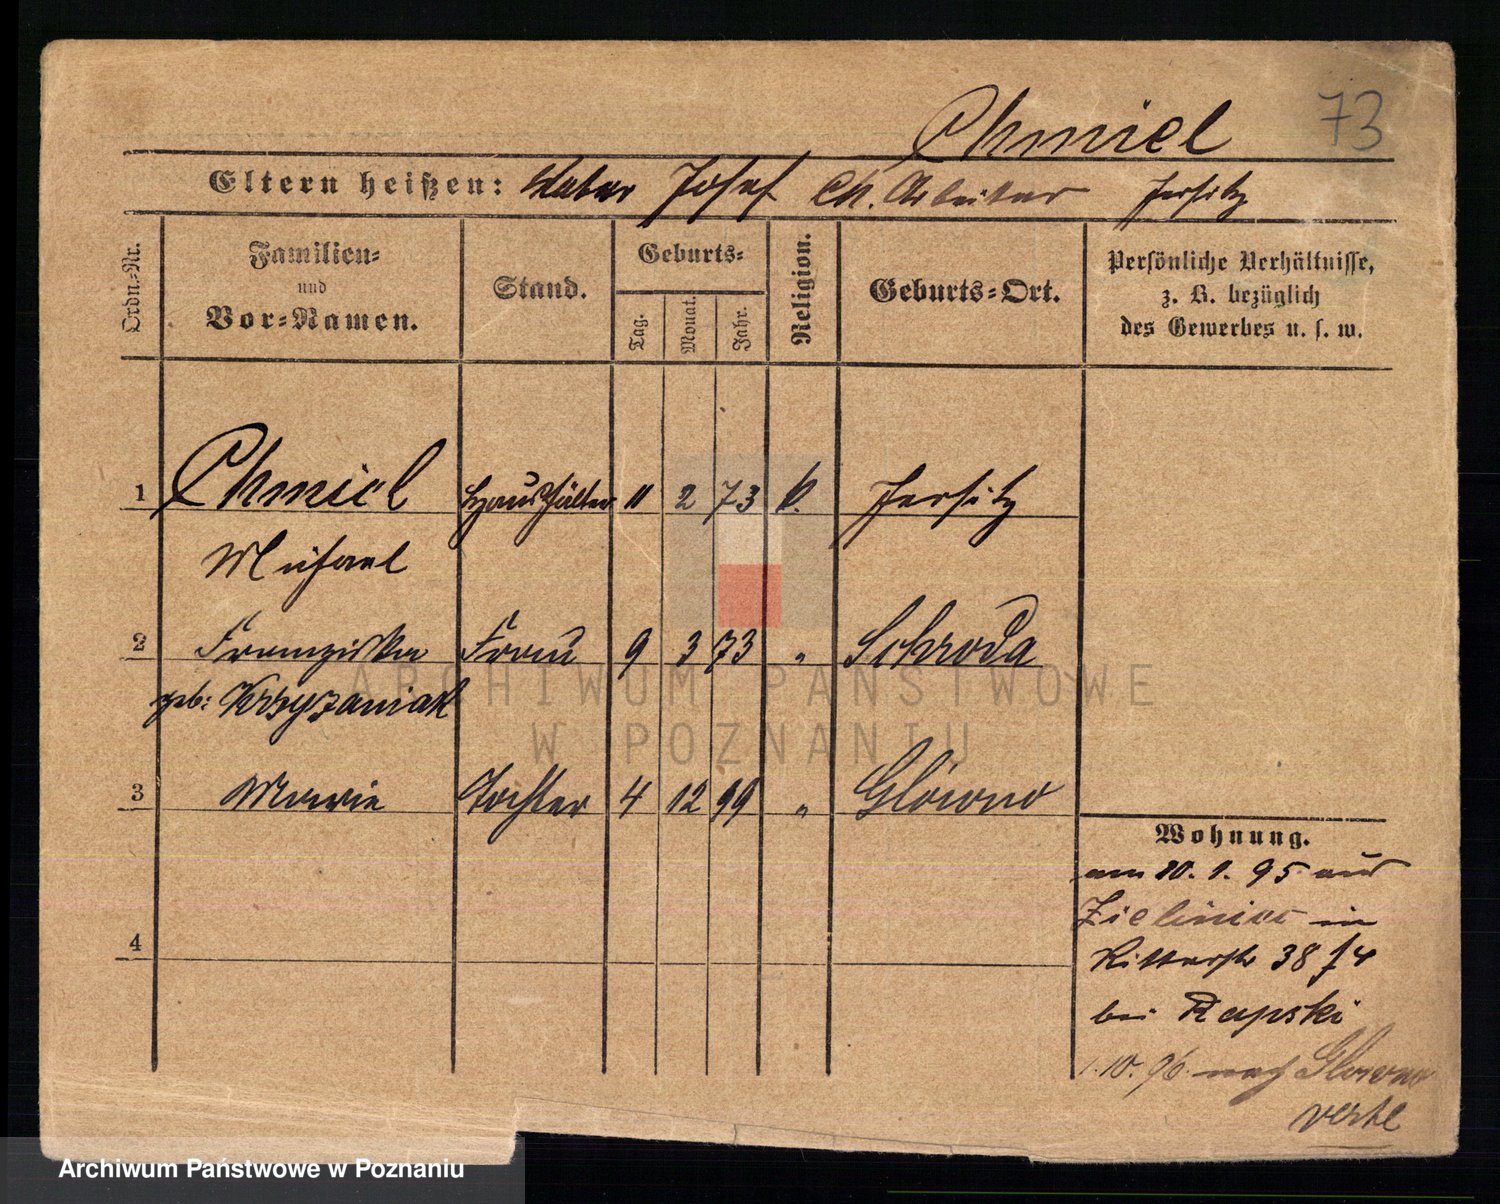 73
Chmiel
Eltern heißen: Vater Josef Ch. Arbeiter Jersitz
Ordn.-Nr.
Familien-
und
Vor-Namen.
Stand.
Geburts-
Tag.
Monat.
Jahr.
Religion.
Geburts-Ort.
Persönliche Verhältnisse,
z. B. bezüglich
des Gewerbes u. s. w.
1 Chmiel Haushälter 11 2 73 k. Jersitz
Michael
2 Franziska Frau 9 3 73 " Schroda
geb: Krzyzaniak
3 Marie Tochter 4 12 99 " Glówno
4
Wohnung.
am 10. 1. 95 aus
Zieliniec in
Ritterstr 38
bei Rapski
1.10.96. nach Glowno
verte
ARCHIWUM PAŃSTWOWE
W POZNANIU
Archiwum Państwowe w Poznaniu